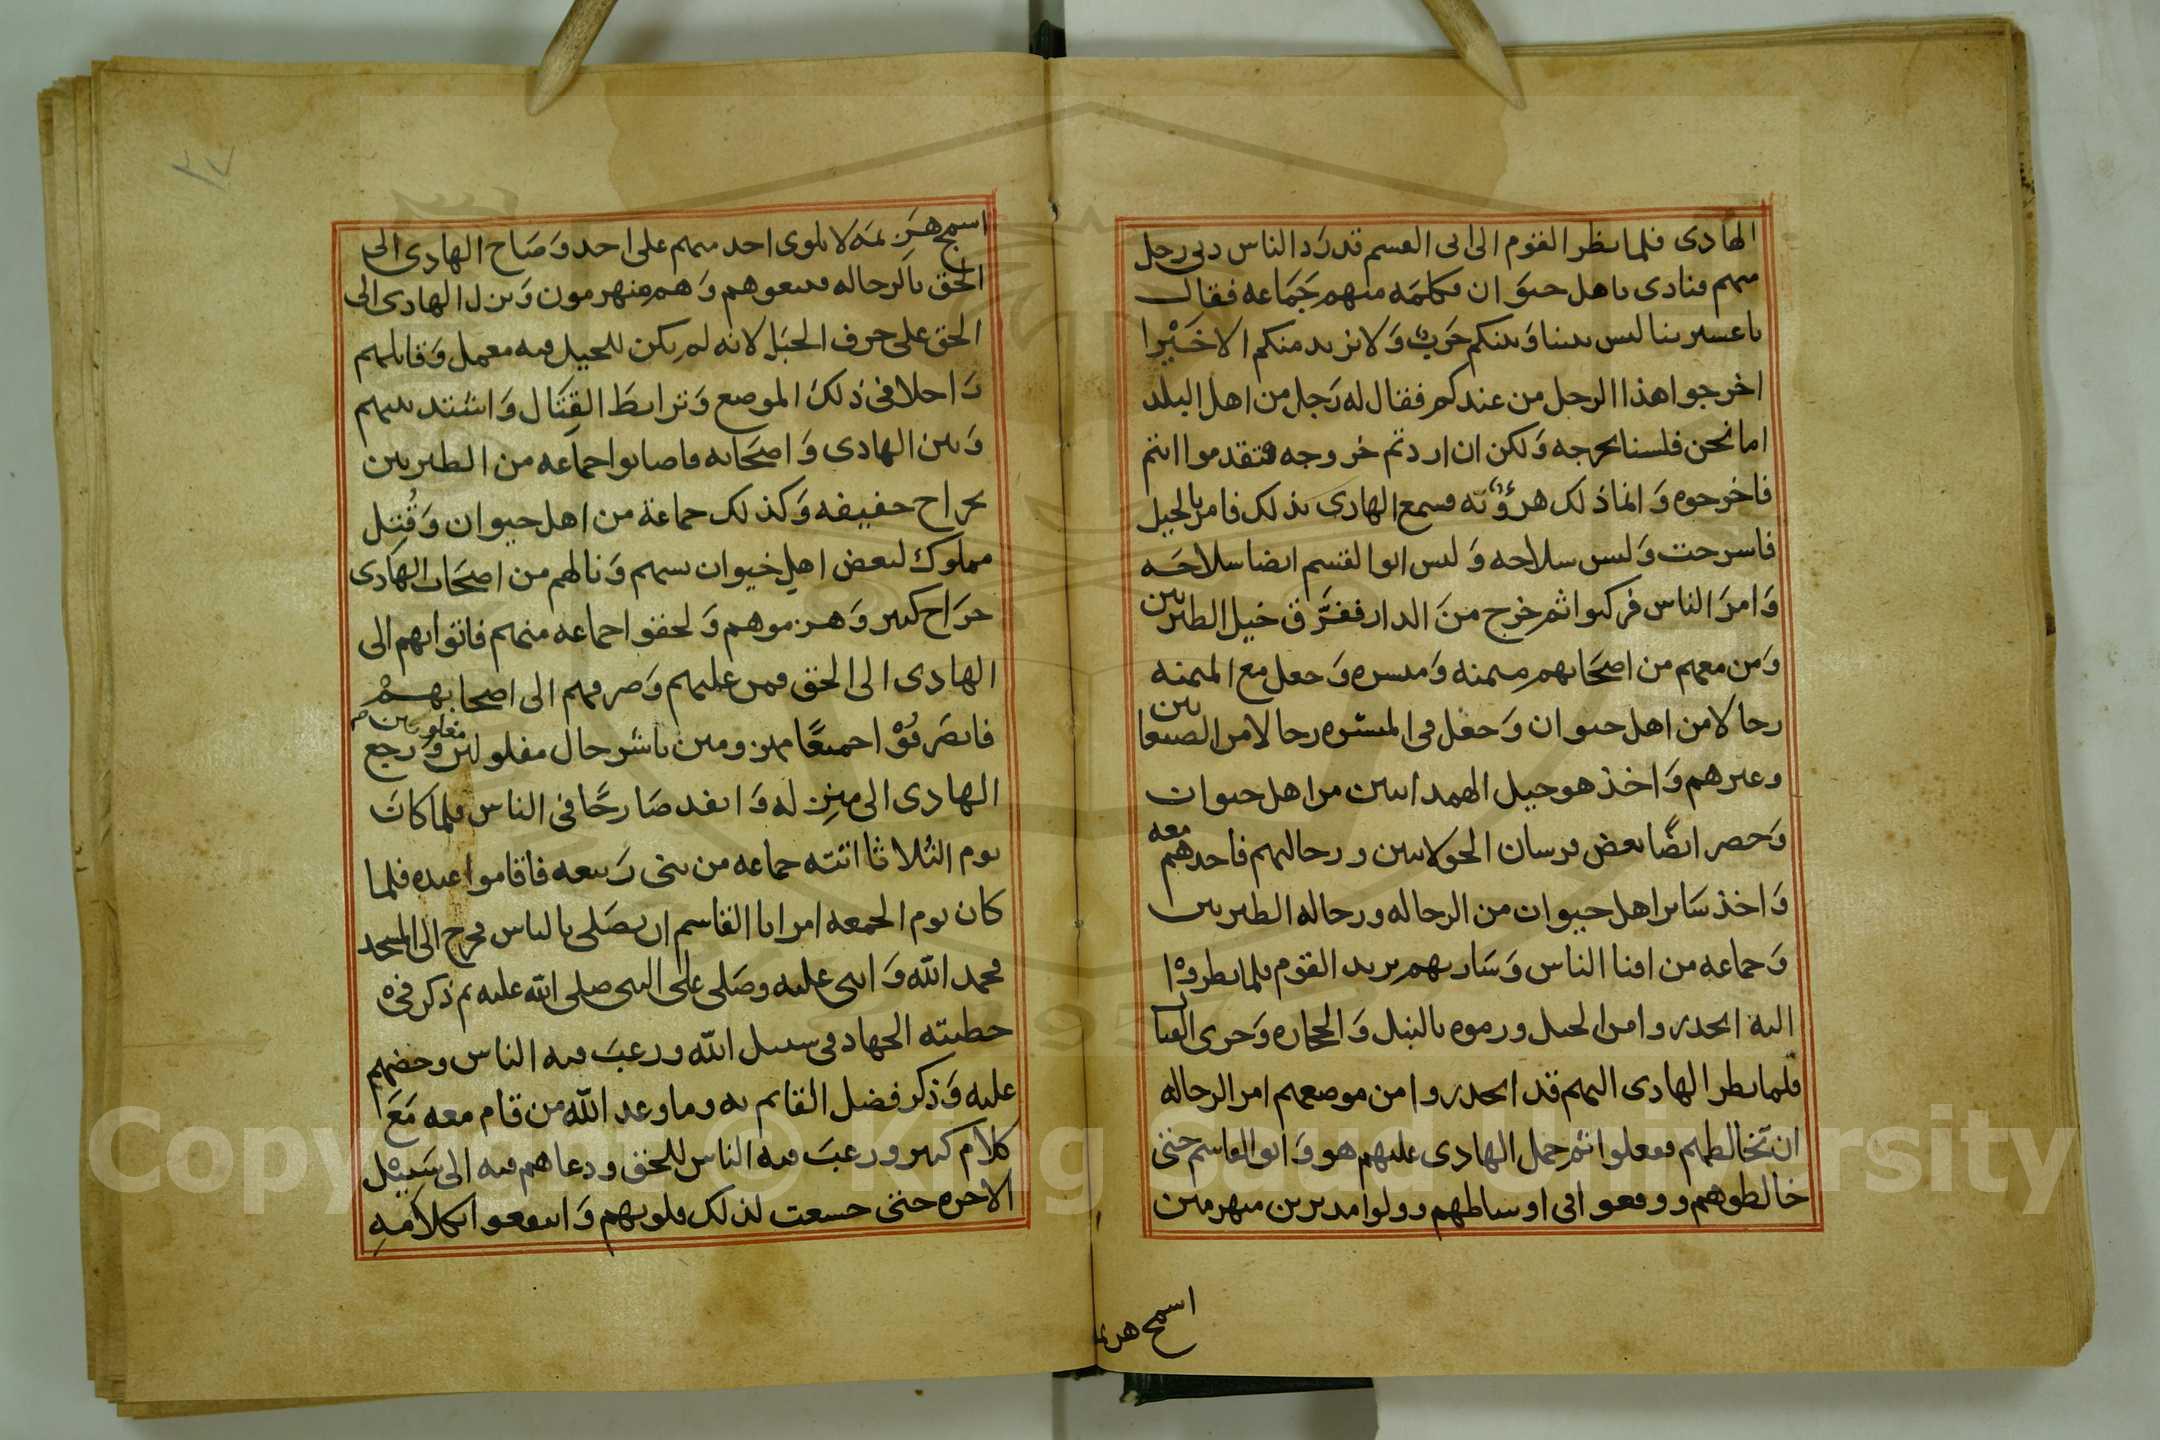 الهادى فلما نظر القوم الى ابى القسم قد رَد الناس دنى رجل
منهم فنادى يا هل حيوَان فكلمَه منهم جَمَاعه فقال
يا عسيرينا ليس بيننا وَبينكم حَربٌ وَلا نريد منكم الا خَيْرا
اخرجوا هذا الرجل من عندكم فقال له رَجل من اهل البلد
اما نحن فلسنا نخرجه وَلكن ان اردتم خروجه فتقدموا انتم
فاخرجوه وَانما ذلك هزؤٌ به فسمع الهادى بذلك فامر بالخيل
فاسرجت وَلبس سلاحه وَلبس ابوا لقسم ايضا سلاحَه
وَامرَ الناس فركبوا ثم خرج منَ الدار ففرَّق خيل الطبريين
وَمن معهم من اصحَابهم ميمنه وَميسره وَجعل مع الميمنه
رجالا من اهل حيوان وَجعل فى الميسره رجالا من الصنعانيين
وغيرهم وَاخذ هو خيل الهمدانيين من اهل حيوان
وَحصر ايضًا بعض فرسان الخولانيين ورجالهم فاخذهم معه
وَاخذ سَاير اهل حيوان من الرجاله ورجاله الطبريين
وَجماعه من افنا الناس وَسَار بهم يريد القوم فلما نظروْا
اليه انحدروا من الجبل ورموه بالنبل وَالحجاره وَجرى القتال
فلما نظر الهادى اليهم قد انحدروا من موضعهم امر الرجاله
ان تخالطهم ففعلوا ثم حمل الهادى عليهم هو وَابو القاسم حتى
خالطوهم ووقعوا فى اوساطهم وولوا مدبرين منهزمين
اسمج هزيمه
٣٧
اسمج هَزِيمَه لا يلوى احد منهم على احد وَصَاح الهادى الى
الحق بالرجاله فتبعوهم وَهم منهزمون وَنزل الهادى الى
الحق على حرف الجبَل لانه لم يكن للخيل فيه معمل وَقاتلهم
رَاجلا فى ذلكَ الموضع وَترابطَ القِتَال وَاشتد بينهم
وَبين الهادى وَاصحَابه فاصابوا جماَعه من الطبريين
بجراح خفيفه وَكذلك جماعة من اهل حيوان وَقُتِل
مملوك لبعض اهلِ خيوان بسهم وَنالهم من اصحَاب الهَادى
جرَاح كبير وَهزموهم وَلحقوا جماعه منهم فاتوا بهم الى
الهادى الى الحق فمن عليهم وَصرفهم الى اصحابهمْ
فانصَرفوْا جميعًا مهزومين باشر حال مفلولين وَرجع
مغلوبين صح
الهادى الى منزِله وَانفد صَارخًا فى الناس فلما كانَ
يوم الثلاثا اتته جماعه من بنى رَبيعه فاقاموا عنده فلما
كان يوم الجمعه امر ابا القاسم ان يصَلى بالناس فخرج الى المسجد
فحمد اللّه وَاثنى عليه وصَلى على النبى صلى اللّه عليه ثم ذكر فىْ
خطبته الجهاد فى سبيل اللّه ورغبَ فيه الناس وحضهم
عليه وَذكر فضل القايم به وما وعد اللّه من قام معه مَعَ
كلام كبير ورغبَ فيه الناس للحق ودعاهم فيه الى سَبيْل
الاخره حتى خشعت لذلك قلوبهم وَانتفعوا بكلامَهِ